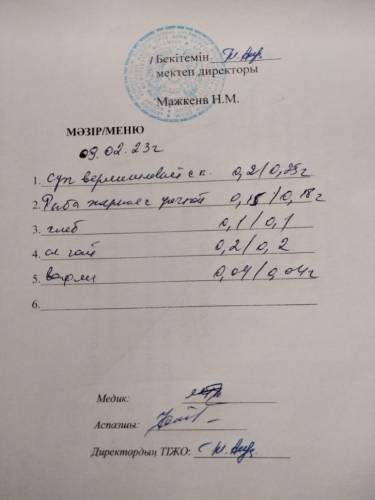 Бекітемін
мектеп директоры
Мажкенв Н.М.
МӘЗІР/МЕНЮ
09.02.23г
1. Суп вермишелевый с к. 0,2/0,25г
2. Рыба жареная с 0,15/0,18г
3. хлеб 0,1/0,1
4. чай 0,2/0,2
5. вафли 0,04/0,04г
6.
Медик:
Аспазшы:
Директордың ТІЖО: